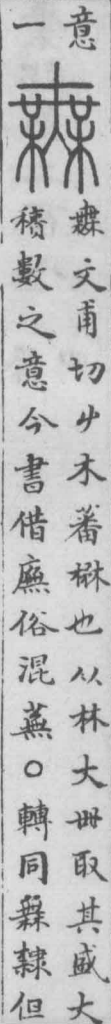 意
一
橆
橆文甫切屮木蕃楙也从林大卌取其盛大
積數之意今書借廡俗混蕪○轉同舞隸但